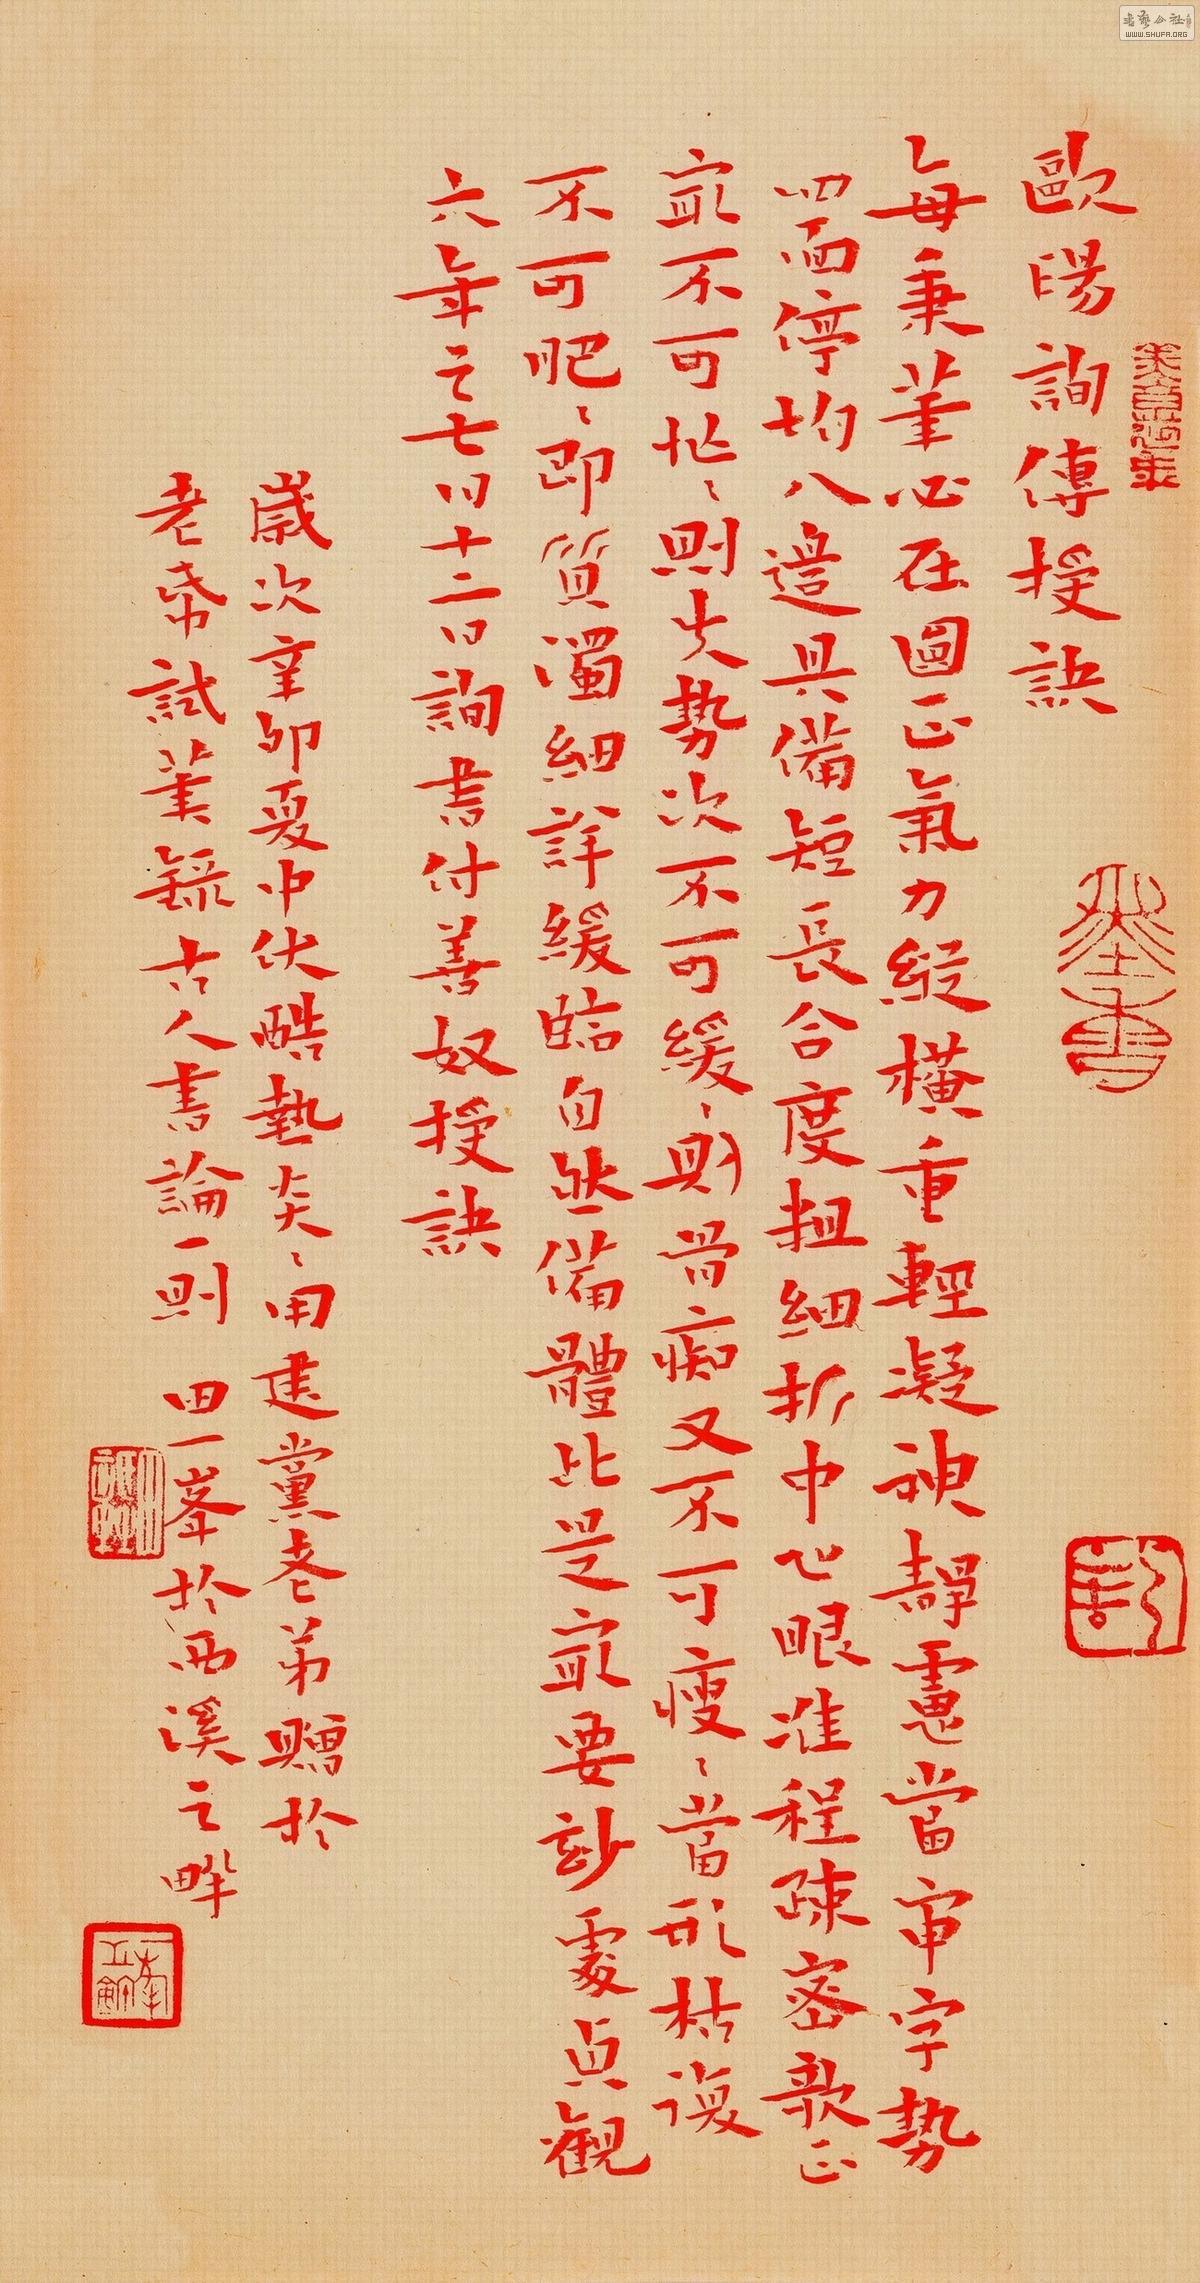 歐陽詢傳授訣
每秉筆必在圓正氣力縱橫重輕凝神靜慮當審字勢
四面停均八邊具備短長合度粗細折中心眼准程疎密欹正
最不可忙〻則失勢次不可緩〻則骨痴又不可瘦〻當形枯復
不可肥〻即質濁細詳緩臨自然備體此是最要玅處貞觀
六年之七月十二日詢書付善奴授訣
歲次辛卯夏中伏酷熱炎〻用建黨老弟贈於
老帋試筆錄古人書論一則 田一峯於西溪之畔
WWW.SHUFA.ORG